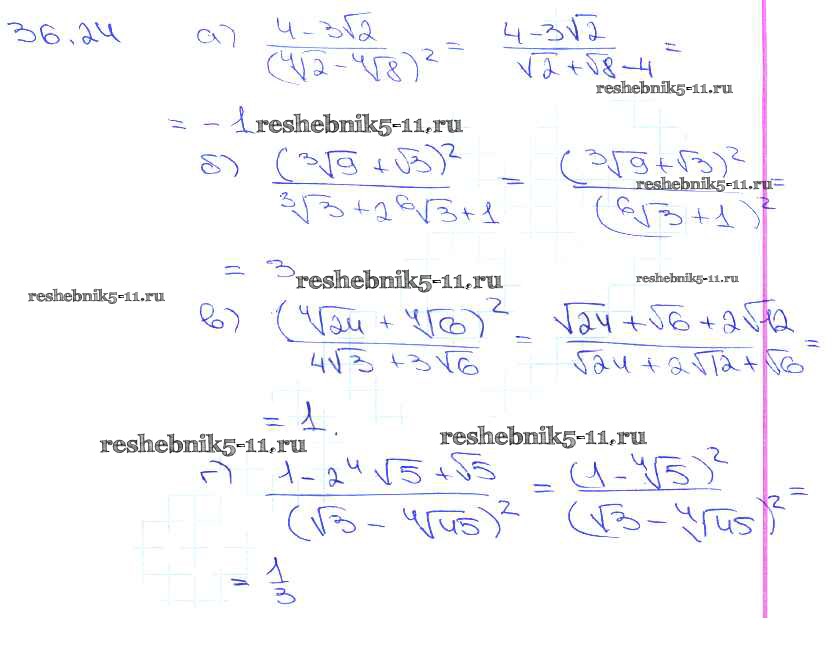 36.24 а) (4-3√2)/(⁴√2-⁴√8)² = (4-3√2)/(√2+√8-4) =
reshebnik5-11.ru
= -1 reshebnik5-11.ru
б) (³√9+√3)²/(³√3+2⁶√3+1) = (³√9+√3)²/(⁶√3+1)² =
reshebnik5-11.ru
= 3 reshebnik5-11.ru reshebnik5-11.ru
reshebnik5-11.ru
в) (⁴√24+⁴√6)²/(4√3+3√6) = (√24+√6+2√12)/(√24+2√12+√6) =
= 1.
reshebnik5-11.ru reshebnik5-11.ru
г) (1-2⁴√5+√5)/(√3-⁴√45)² = (1-⁴√5)²/(√3-⁴√45)² =
= 1/3